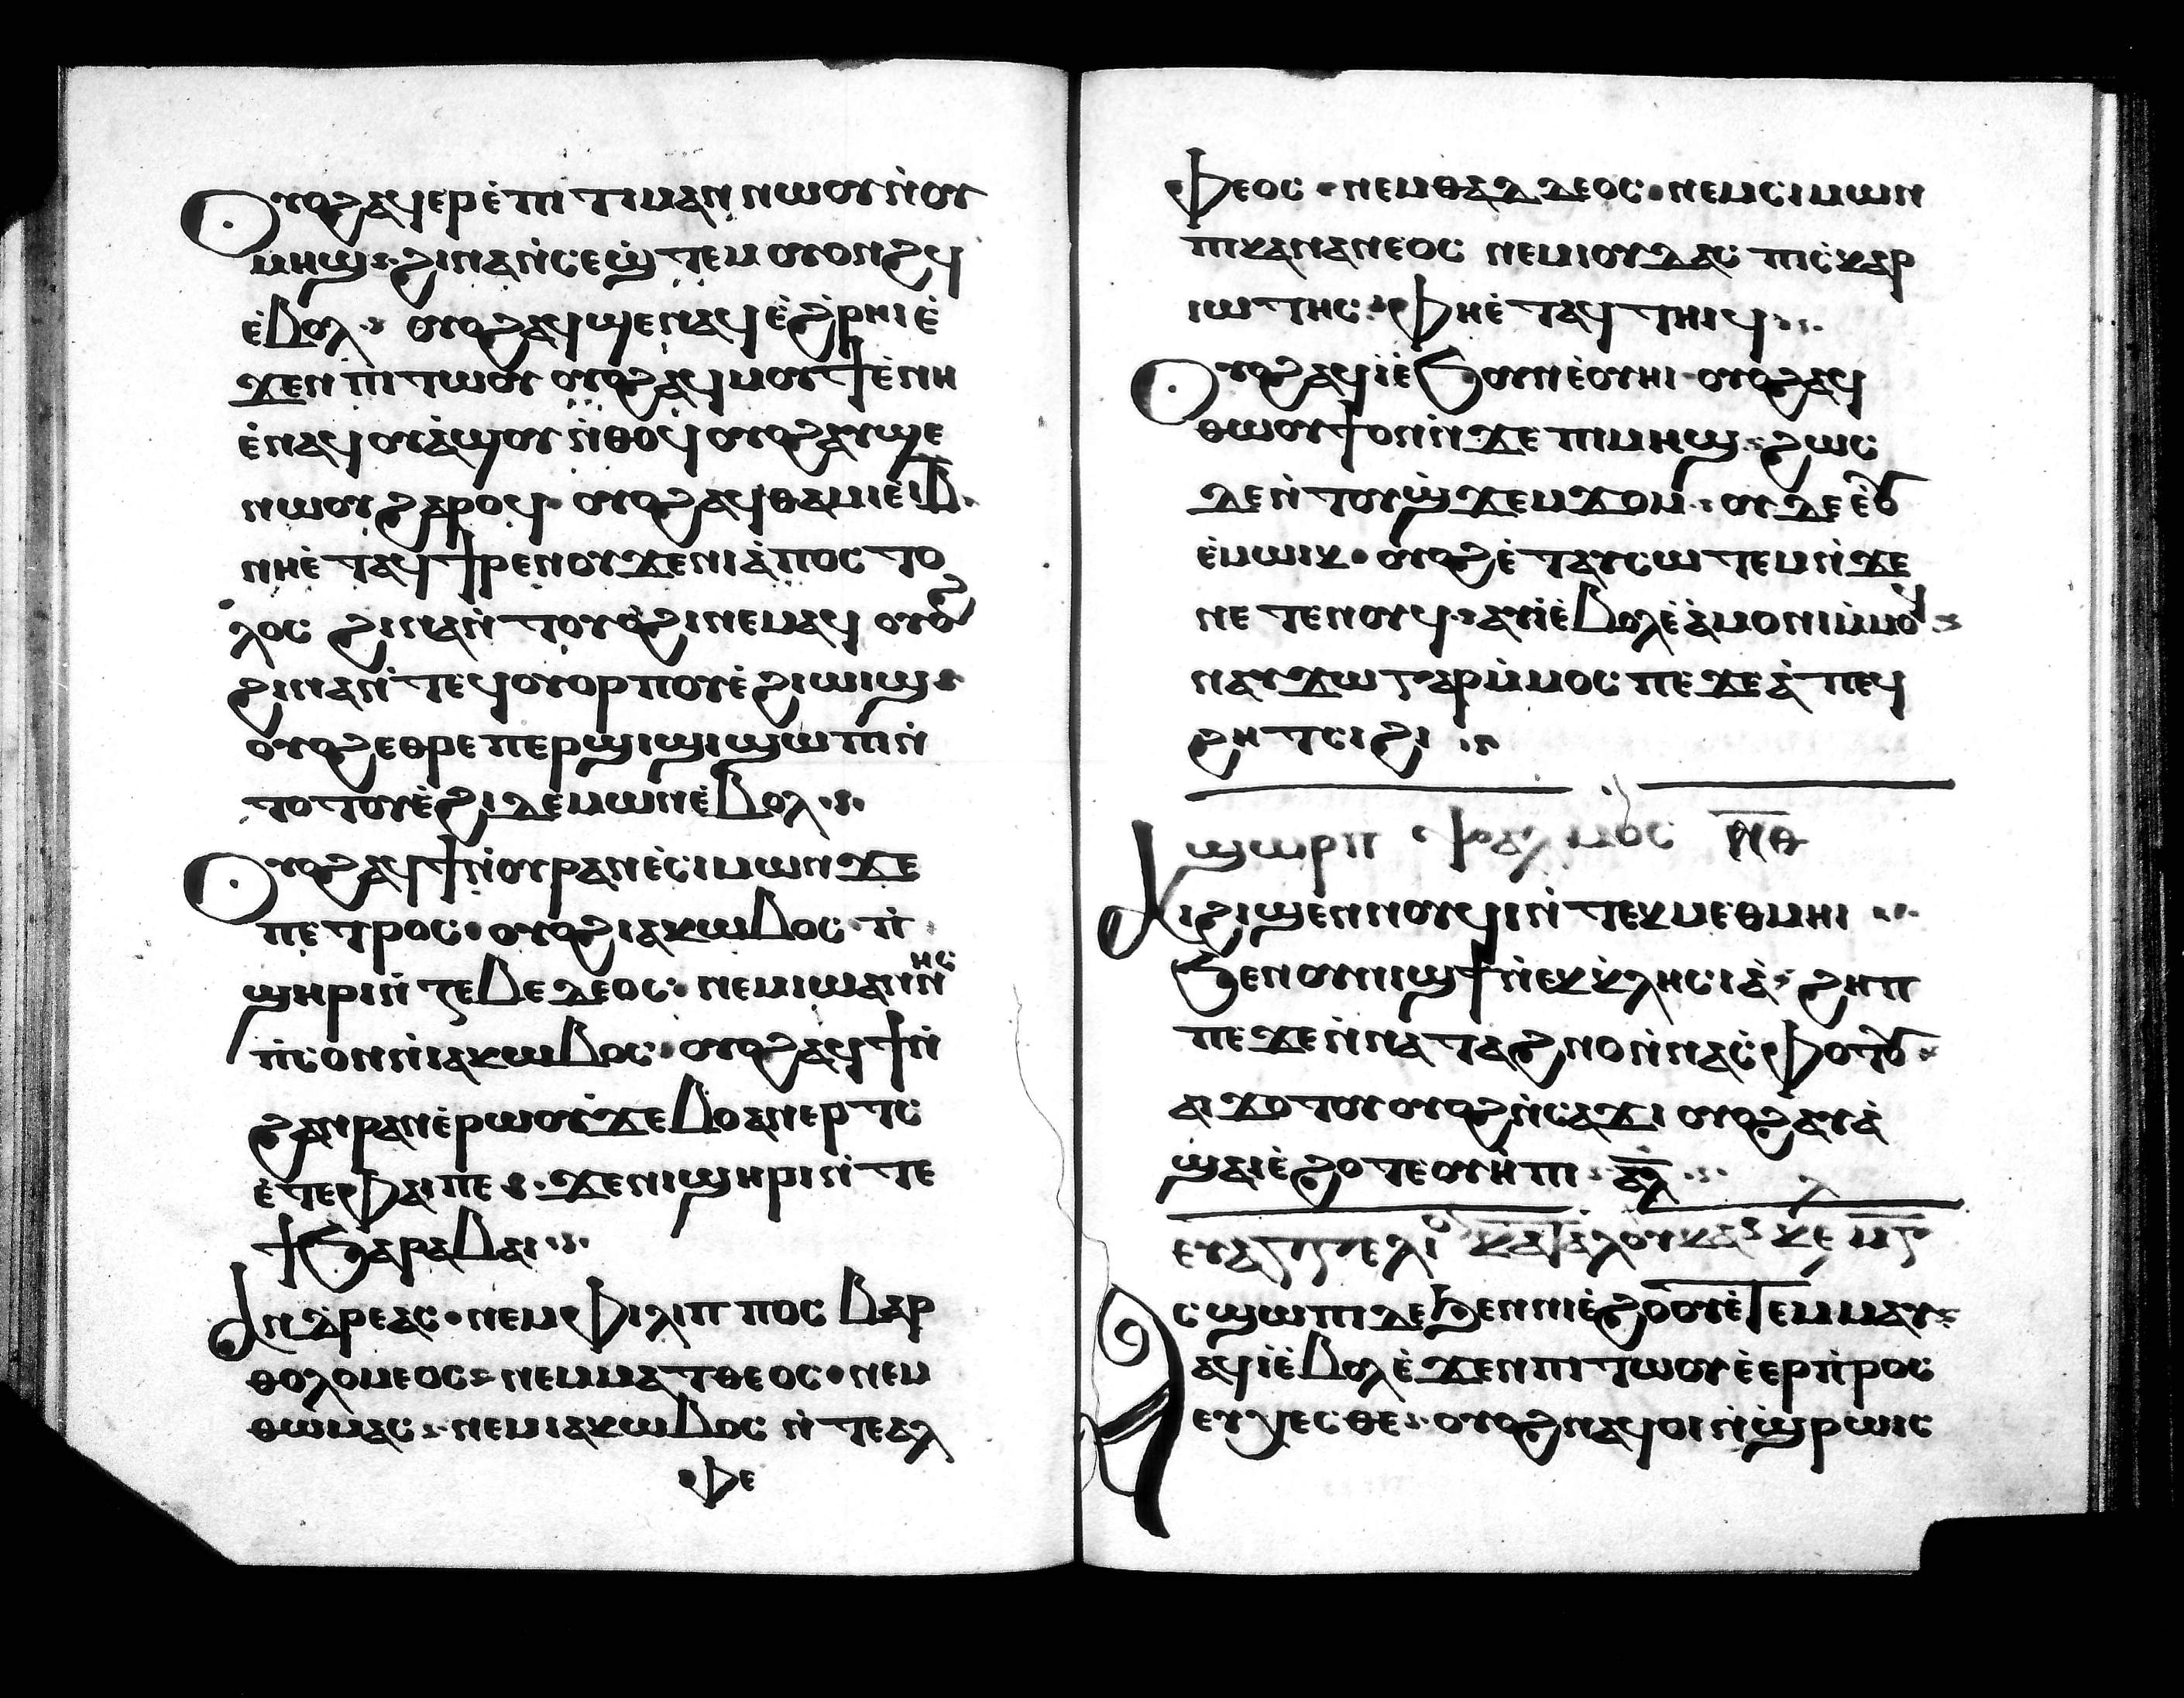 Ⲟⲩⲟϩ ⲁϥⲉⲣⲉ̀ⲡⲓⲧⲓⲙⲁⲛ ⲛⲱⲟⲩ ⲛ̀ⲟⲩ
ⲙⲏϣ ϩⲓⲛⲁ ⲛ̀ⲥⲉϣ̀ⲧⲉⲙ ⲟⲩⲟⲛϩϥ
ⲉ̀ⲃⲟⲗ ⲟⲩⲟϩ ⲁϥϣⲉⲛⲁϥ ⲉ̀ϩ̀ⲣⲏⲓ ⲉ̀
ϫⲉⲛ ⲡⲓⲧⲱⲟⲩ ⲟⲩⲟϩ ⲁϥⲙⲟⲩϯ ⲉ̀ⲛⲏ
ⲉ̀ⲛⲁϥⲟⲩⲁ̀ϣⲟⲩ ⲛ̀ⲑⲟϥ ⲟⲩⲟϩ ⲁⲩϣⲉ
ⲛⲱⲟⲩ ϩⲁⲣⲟϥ ⲟⲩⲟϩ ⲁϥⲑⲁⲙⲓⲉ̀ ⲓ̅ⲃ̅
ⲛⲏⲉ̀ⲧⲁϥϯⲣⲉⲛⲟⲩ ϫⲉ ⲛⲓⲁ̀ⲡⲟⲥⲧⲟ
ⲗⲟⲥ ϩⲓⲛⲁ ⲛ̀ⲧⲟⲩⲟ̀ϩⲓ ⲛⲉⲙⲁϥ ⲟⲩⲟϩ
ϩⲓⲛⲁ ⲛ̀ⲧⲉϥⲟⲩⲟⲣⲡⲟⲩ ⲉ̀ϩⲓⲱⲓϣ
ⲟⲩⲟϩ ⲉⲑⲣⲉ ⲡⲉⲣϣⲓϣⲓ ϣⲱⲡⲓ ⲛ̀
ⲧⲟⲧⲟⲩ ⲉ̀ϩⲓ ⲇⲉⲙⲱⲛ ⲉ̀ⲃⲟⲗ
Ⲟⲩⲟϩ ⲁϥϯ ⲛ̀ⲟⲩⲣⲁⲛ ⲉ̀ⲥⲓⲙⲱⲛ ϫⲉ
ⲡⲉⲧⲣⲟⲥ ⲟⲩⲟϩ ⲓⲁⲕⲱⲃⲟⲥ ⲡ̀
ϣⲏⲣⲓ ⲛ̀ⲧⲉ ⲃⲉⲇⲉⲟⲥ ⲛⲉⲙ ⲓⲱⲁⲛⲛⲏⲥ
ⲡ̀ⲥⲟⲛ ⲛ̀ⲓⲁⲕⲱⲃⲟⲥ ⲟⲩⲟϩ ⲁϥϯ ⲛ̀
ϩⲁⲛⲣⲁⲛ ⲉ̀ⲣⲱⲟⲩ ϫⲉ ⲃⲟⲁⲛⲉⲣⲧⲥ
ⲉ̀ⲧⲉ ⲫⲁⲓ ⲡⲉ ϫⲉ ⲛⲓϣⲏⲣⲓ ⲛ̀ⲧⲉ
ϯϭⲁⲣⲁⲃⲁⲓ
Ⲁⲛⲇⲣⲉⲁⲥ ⲛⲉⲙ ⲫⲓⲗⲓⲡⲡⲟⲥ ⲃⲁⲣ
ⲑⲟⲗⲟⲙⲉⲟⲥ ⲛⲉⲙ ⲙⲁⲧⲑⲉⲟⲥ ⲛⲉⲙ
ⲑⲱⲙⲁⲥ ⲛⲉⲙ ⲓⲁⲕⲱⲃⲟⲥ ⲛ̀ⲧⲉ ⲁⲗ
ⲫⲉ
ⲫⲉⲟⲥ ⲛⲉⲙ ⲑⲁⲇⲇⲉⲟⲥ ⲛⲉⲙ ⲥⲓⲙⲱⲛ
ⲡⲓⲕⲁⲛⲁⲛⲉⲟⲥ ⲛⲉⲙ ⲓⲟⲩⲇⲁⲥ ⲡⲓⲥ̀ⲕⲁⲣ
ⲓⲱⲧⲏⲥ ⲫⲏⲉ̀ⲧⲁϥⲧⲏⲓϥ
Ⲟⲩⲟϩ ⲁϥⲓ̀ ⲉ̀ϧⲟⲩⲛ ⲉ̀ⲟⲩⲏⲓ ⲟⲩⲟϩ ⲁϥ
ⲑⲱⲟⲩϯ ⲟⲛ ⲛ̀ϫⲉ ⲡⲓⲙⲏϣ ϩⲱⲥ
ⲇⲉ ⲛ̀ⲧⲟⲩϣ̀ϫⲉⲙϫⲟⲙ ⲟⲩⲇⲉ ⲉ̀ⲟⲩ
ⲉ̀ⲙⲱⲓⲕ ⲟⲩⲟϩ ⲉ̀ⲧⲁⲩⲥⲱⲧⲉⲙ ⲛ̀ϫⲉ
ⲛⲉⲧⲉⲛⲟⲩϥ ⲁⲩⲓ̀ ⲉ̀ⲃⲟⲗ ⲉ̀ⲁ̀ⲙⲟⲛⲓ ⲙ̀ⲙⲟϥ
ⲛⲁⲩϫⲱ ⲅⲁⲣ ⲙ̀ⲙⲟⲥ ⲡⲉ ϫⲉ ⲁ̀ⲡⲉϥ
ϩⲏⲧ ⲥⲓϩⲓ
ϣⲱⲣⲡ ⲯⲁⲗⲙⲟⲥ
Ⲁⲓϩⲓϣⲉⲛⲛⲟⲩϥⲓ ⲛ̀ⲧⲉⲕⲙⲉⲑⲙⲏⲓ
ϧⲉⲛ ⲟⲩⲛⲓϣϯ ⲛ̀ⲉⲕⲕⲗⲏⲥⲓⲁ̀ ϩⲏⲡ
ⲡⲉ ϫⲉ ⲛ̀ⲛⲁⲧⲁϩⲛⲟ ⲛ̀ⲛⲁⲥ̀ⲫⲟⲧⲟⲩ
ⲁⲓϫⲟⲧⲟⲩ ⲟⲩⲟϩ ⲛ̀ⲥⲁϫⲓ ⲟⲩⲟϩ ⲁⲩⲁ̀
ϣⲁⲓ ⲉ̀ϩⲟⲧⲉ ⲟⲩⲏ̀ⲡⲓ ⲁ̅ⲗ̅
ⲉⲩⲁⲅⲅⲉⲗⲓⲟ ⲕⲁⲧⲁ ⲗⲟⲩⲕⲁⲥ ⲕⲉ
Ⲁⲥϣⲱⲡⲓ ⲇⲉ ϧⲉⲛ ⲛⲓⲉ̀ϩⲟⲟⲩ ⲉ̀ⲧⲉⲙⲙⲁⲩ
ⲁϥⲓ̀ ⲉ̀ⲃⲟⲗ ⲉ̀ϫⲉⲛ ⲡⲓⲧⲱⲟⲩ ⲉ̀ⲉⲣⲡ̀ⲣⲟⲥ
ⲉⲩⲭⲉⲥⲑⲉ̀ ⲟⲩⲟϩ ⲛⲁϥⲟⲓ ⲛ̀ϣ̀ⲣⲱⲓⲥ